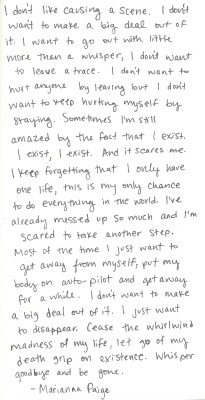 I don't like causing a scene. I don't
want to make a big deal out of
it. I want to go out with little
more than a whisper, I don't want
to leave a trace. I don't want to
hurt anyone by leaving but I don't
want to keep hurting myself by
staying. Sometimes I'm still
amazed by the fact that I exist.
I exist, I exist. And it scares me.
I keep forgetting that I only have
one life, this is my only chance
to do everything in the world. I've
already messed up so much and I'm
scared to take another step.
Most of the time I just want to
get away from myself, put my
body on auto-pilot and get away
for a while. I don't want to make
a big deal out of it. I just want
to disappear. Cease the whirlwind
madness of my life, let go of my
death grip on existence. Whisper
goodbye and be gone.
- Marianna Paige